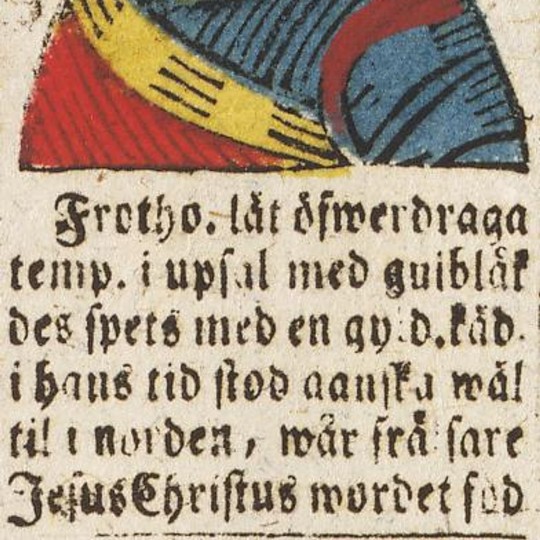 Frotho. lät öfwerdraga
temp. i upsal med gulbläk
des spets med en gyld. käd.
i hans tid stod ganska wäl
til i norden, wår frälsare
Jesus Christus wordet fod